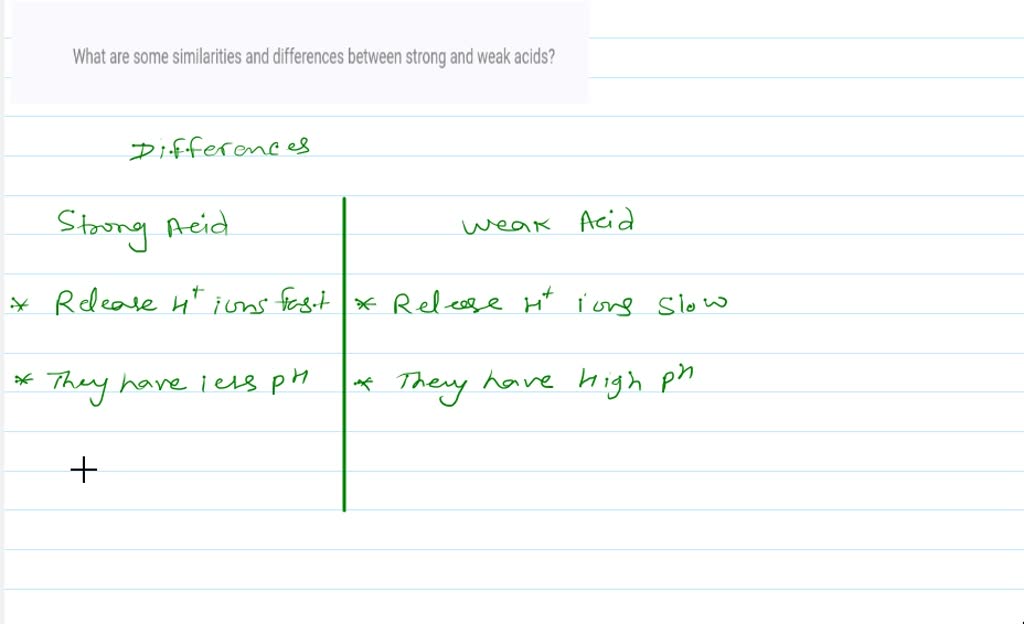 What are some similarities and differences between strong and weak acids?
Differences
Strong Acid
Weak Acid
* Release H+ ions fast
* Release H+ ions slow
* They have less pH
* They have High pH